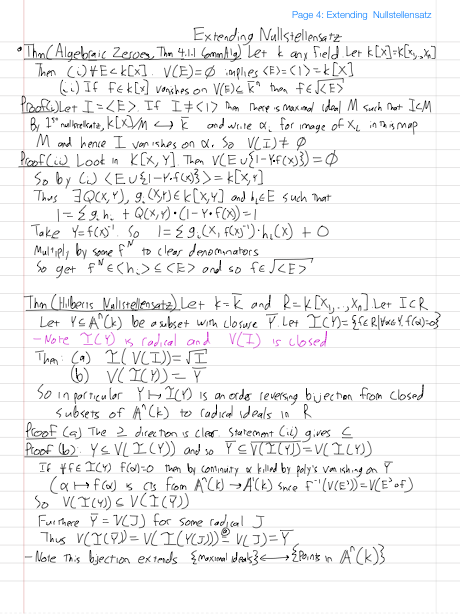 Page 4: Extending Nullstellensatz
Extending Nullstellensatz
• Thm (Algebraic Zeroes, Thm 4.1.1 CommAlg) Let k any field Let k[X]=k[x₁,..,xₙ]
Then (i) ∀E⊂k[X]. V(E)=∅ implies <E>=<1>=k[X]
(ii) If f∈k[X] vanishes on V(E)⊆k̄ⁿ then f∈√<E>
Proof(i) Let I=<E>. If I≠<1> then there is maximal ideal M such that I⊂M
By 1ˢᵗ nullstellsatz, k[X]/M ↪ k̄ and write αᵢ for image of xᵢ in this map
M and hence I vanishes on α. So V(I)≠∅
Proof(ii) Look in k[X,Y]. Then V(E∪{1-Y·f(x)})=∅
So by (i) <E∪{1-Y·f(x)}>=k[X,Y]
Thus ∃Q(X,Y), gᵢ(X,Y)∈k[X,Y] and hᵢ∈E such that
1=Σgᵢhᵢ + Q(X,Y)·(1-Y·f(X))=1
Take Y=f(x)⁻¹. So 1=Σgᵢ(X,f(x)⁻¹)·hᵢ(X) + 0
Multiply by some fᴺ to clear denominators
So get fᴺ∈<hᵢ>⊆<E> and so f∈√<E>
Thm (Hilberts Nullstellensatz) Let k=k̄ and R=k[X₁,..,Xₙ] Let I⊂R
Let Y⊆𝔸ⁿ(k) be a subset with closure Ȳ. Let I(Y)={f∈R|∀α∈Y. f(α)=0}
- Note I(Y) is radical and V(I) is closed
Then: (a) I(V(I))=√I
(b) V(I(Y))=Ȳ
So in particular Y↦I(Y) is an order reversing bijection from closed
subsets of 𝔸ⁿ(k) to radical ideals in R
Proof (a) The ⊇ direction is clear. Statement (ii) gives ⊆
Proof (b): Y⊆V(I(Y)) and so Ȳ⊆V(I(Y))=V(I(Y))
If ∀f∈I(Y) f(α)=0 then by continuity α killed by poly's vanishing on Ȳ
(α↦f(α) is cts from 𝔸ⁿ(k)→𝔸¹(k) since f⁻¹(V(E'))=V(E'∘f)
So V(I(Y))⊆V(I(Ȳ))
Further Ȳ=V(J) for some radical J
Thus V(I(Ȳ))=V(I(V(J)))=V(J)=Ȳ
- Note this bijection extends {maximal ideals}⟷{Points in 𝔸ⁿ(k)}